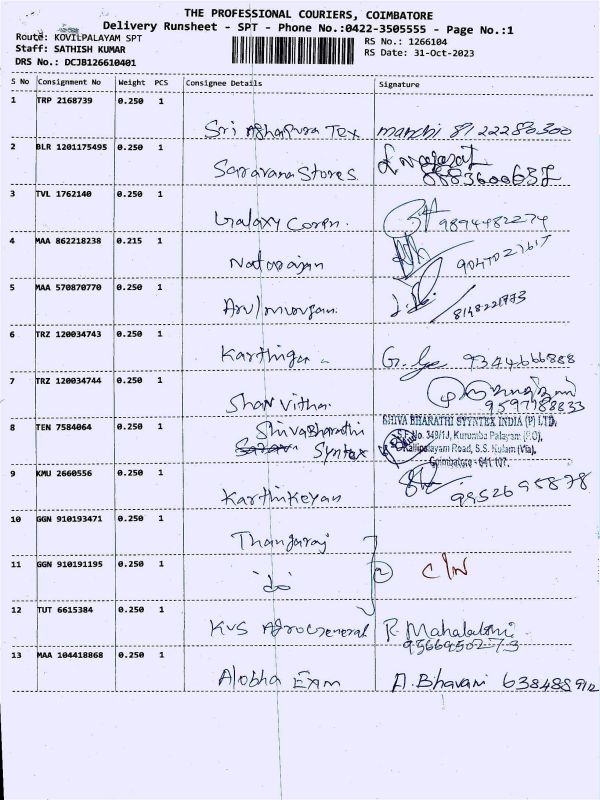 THE PROFESSIONAL COURIERS, COIMBATORE
Delivery Runsheet - SPT - Phone No.:0422-3505555 - Page No.:1
Route: KOVILPALAYAM SPT
RS No.: 1266104
Staff: SATHISH KUMAR
RS Date: 31-Oct-2023
DRS No.: DCJB126610401
S No Consignment No Weight PCS Consignee Details Signature
1 TRP 2168739 0.250 1
Sri Tex 8122280300
2 BLR 1201175495 0.250 1
Saravana Stores
3 TVL 1762140 0.250 1
Galaxy Corpn. 9894482274
4 MAA 862218238 0.215 1
Natarajan
5 MAA 570870770 0.250 1
Arulmurgan. 8148221773
6 TRZ 120034743 0.250 1
Karthiga 9344666888
7 TRZ 120034744 0.250 1
9597188833
8 TEN 7584064 0.250 1
ShivaBharathi
Syntax
SHIVA BHARATHI SYNTEX INDIA (P) LTD.
No. 349/1J, Kurumba Palayam (P.O),
Kallipalayam Road, S.S. Kulam (Via),
Coimbatore - 641 107.
9 KMU 2660556 0.250 1
Karthikeyan 9952695878
10 GGN 910193471 0.250 1
Thangaraj
11 GGN 910191195 0.250 1
do 2 C/N
12 TUT 6615384 0.250 1
KVS Agro General R. Mahalakshmi
9566950273
13 MAA 104418868 0.250 1
Exam A. Bhavani